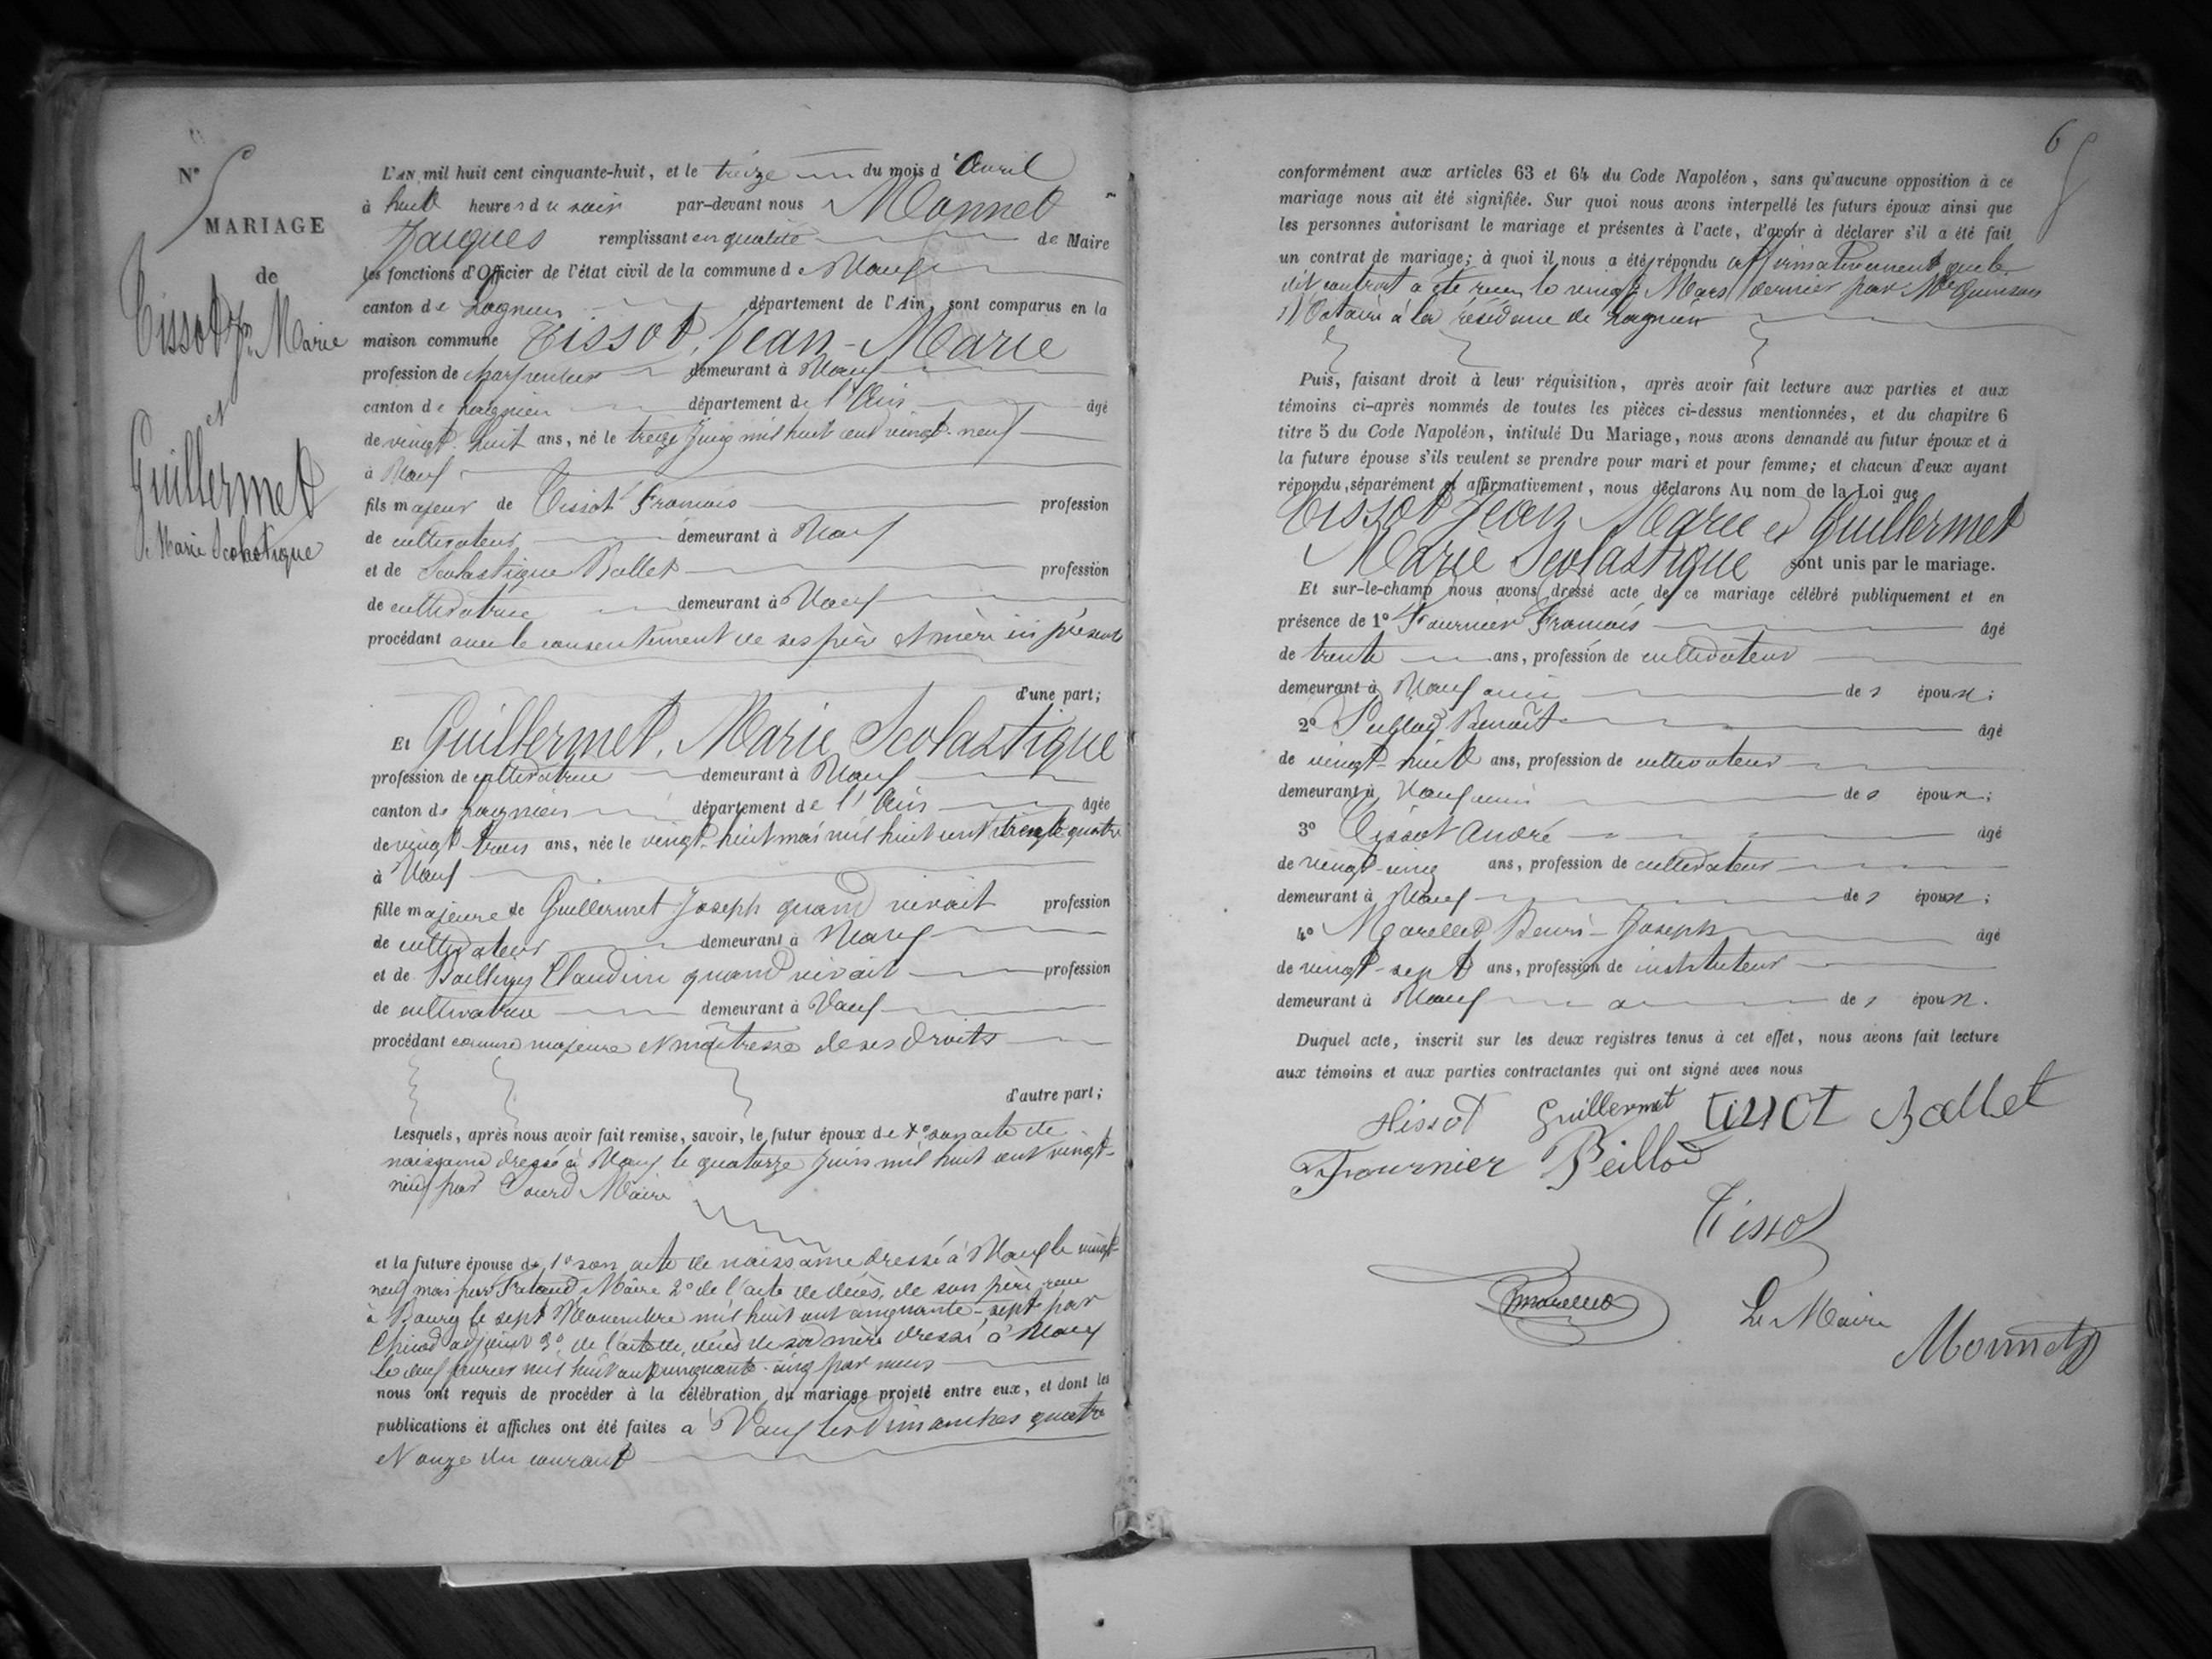 N° 5
MARIAGE
de
Tissot Jn Marie
et
Guillermet
Marie Scolastique
L'AN mil huit cent cinquante-huit, et le treize du mois d'Avril
à huit heures du soir par-devant nous Monnet
Jacques remplissant en qualité de Maire
les fonctions d'Officier de l'état civil de la commune de Vaux
canton de Lagnieu département de l'Ain, sont comparus en la
maison commune Tissot, Jean-Marie
profession de charpentier demeurant à Vaux
canton de Lagnieu département de l'Ain âgé
de vingt-huit ans, né le treize Juin mil huit cent vingt-neuf
à Vaux
fils majeur de Tissot François profession
de cultivateur demeurant à Vaux
et de Scolastique Ballet profession
de cultivatrice demeurant à Vaux
procédant avec le consentement de ses père et mère ici présents
d'une part;
Et Guillermet, Marie Scolastique
profession de cultivatrice demeurant à Vaux
canton de Lagnieu département de l'Ain âgée
de vingt-trois ans, née le vingt-huit mai mil huit cent trente quatre
à Vaux
fille majeure de Guillermet Joseph quand vivait profession
de cultivateur demeurant à Vaux
et de Claudine quand vivait profession
de cultivatrice demeurant à Vaux
procédant comme majeure et maîtresse de ses droits
d'autre part;
Lesquels, après nous avoir fait remise, savoir, le futur époux de 1° son acte de
naissance dressé à Vaux le quatorze Juin mil huit cent vingt-
neuf par Maire
et la future épouse de 1° son acte de naissance dressé à Vaux le vingt-
neuf mai par Maire 2° de l'acte de décès de son père, reçu
à Bourg le sept Novembre mil huit cent cinquante-sept par
adjoint 3° de l'acte de décès de sa mère dressé à Vaux
le février mil huit cent cinquante-cinq par nous
nous ont requis de procéder à la célébration du mariage projeté entre eux, et dont les
publications et affiches ont été faites à Vaux les dimanches quatre
et onze du courant
6
conformément aux articles 63 et 64 du Code Napoléon, sans qu'aucune opposition à ce
mariage nous ait été signifiée. Sur quoi nous avons interpellé les futurs époux ainsi que
les personnes autorisant le mariage et présentes à l'acte, d'avoir à déclarer s'il a été fait
un contrat de mariage; à quoi il nous a été répondu affirmativement que le
dit contrat a été reçu le vingt Mars dernier par Me Quinson
Notaire à la résidence de Lagnieu
Puis, faisant droit à leur réquisition, après avoir fait lecture aux parties et aux
témoins ci-après nommés de toutes les pièces ci-dessus mentionnées, et du chapitre 6
titre 5 du Code Napoléon, intitulé Du Mariage, nous avons demandé au futur époux et à
la future épouse s'ils veulent se prendre pour mari et pour femme; et chacun d'eux ayant
répondu, séparément et affirmativement, nous déclarons Au nom de la Loi que
Tissot Jean Marie et Guillermet
Marie Scolastique sont unis par le mariage.
Et sur-le-champ nous avons dressé acte de ce mariage célébré publiquement et en
présence de 1° Fournier François âgé
de trente ans, profession de cultivateur
demeurant à Vaux ami des époux;
2° Peillod Benoît âgé
de vingt-huit ans, profession de cultivateur
demeurant à Vaux ami des époux;
3° Tissot André âgé
de vingt-cinq ans, profession de cultivateur
demeurant à Vaux des époux;
4° Marellet Henri-Joseph âgé
de vingt-sept ans, profession de instituteur
demeurant à Vaux des époux.
Duquel acte, inscrit sur les deux registres tenus à cet effet, nous avons fait lecture
aux témoins et aux parties contractantes qui ont signé avec nous
Tissot Guillermet Tissot Ballet
Fournier Peillod
Tissot
Le Maire
Monnet